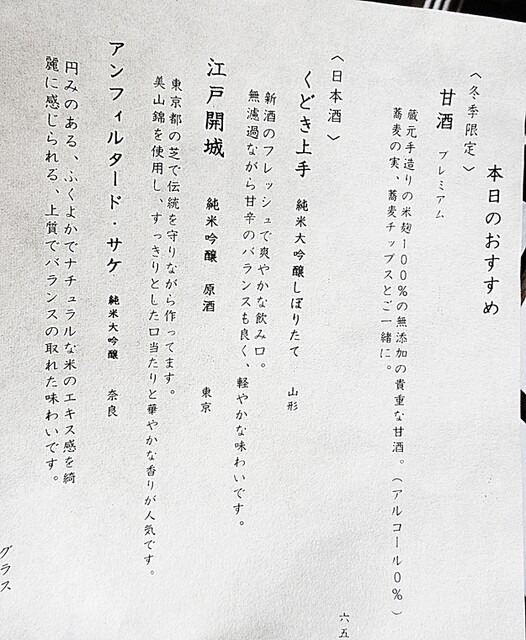 本日のおすすめ
〈冬季限定〉
甘酒 プレミアム
蔵元手造りの米麹100%の無添加の貴重な甘酒。(アルコール0%)
蕎麦の実、蕎麦チップスとご一緒に。
〈日本酒〉 六五
くどき上手 純米大吟醸しぼりたて 山形
新酒のフレッシュで爽やかな飲み口。
無濾過ながら甘辛のバランスも良く、軽やかな味わいです。
江戸開城 純米吟醸 原酒 東京
東京都の芝で伝統を守りながら作ってます。
美山錦を使用し、すっきりとした口当たりと華やかな香りが人気です。
アンフィルタード・サケ 純米大吟醸 奈良
円みのある、ふくよかでナチュラルな米のエキス感を綺
麗に感じられる、上質でバランスの取れた味わいです。
グラス